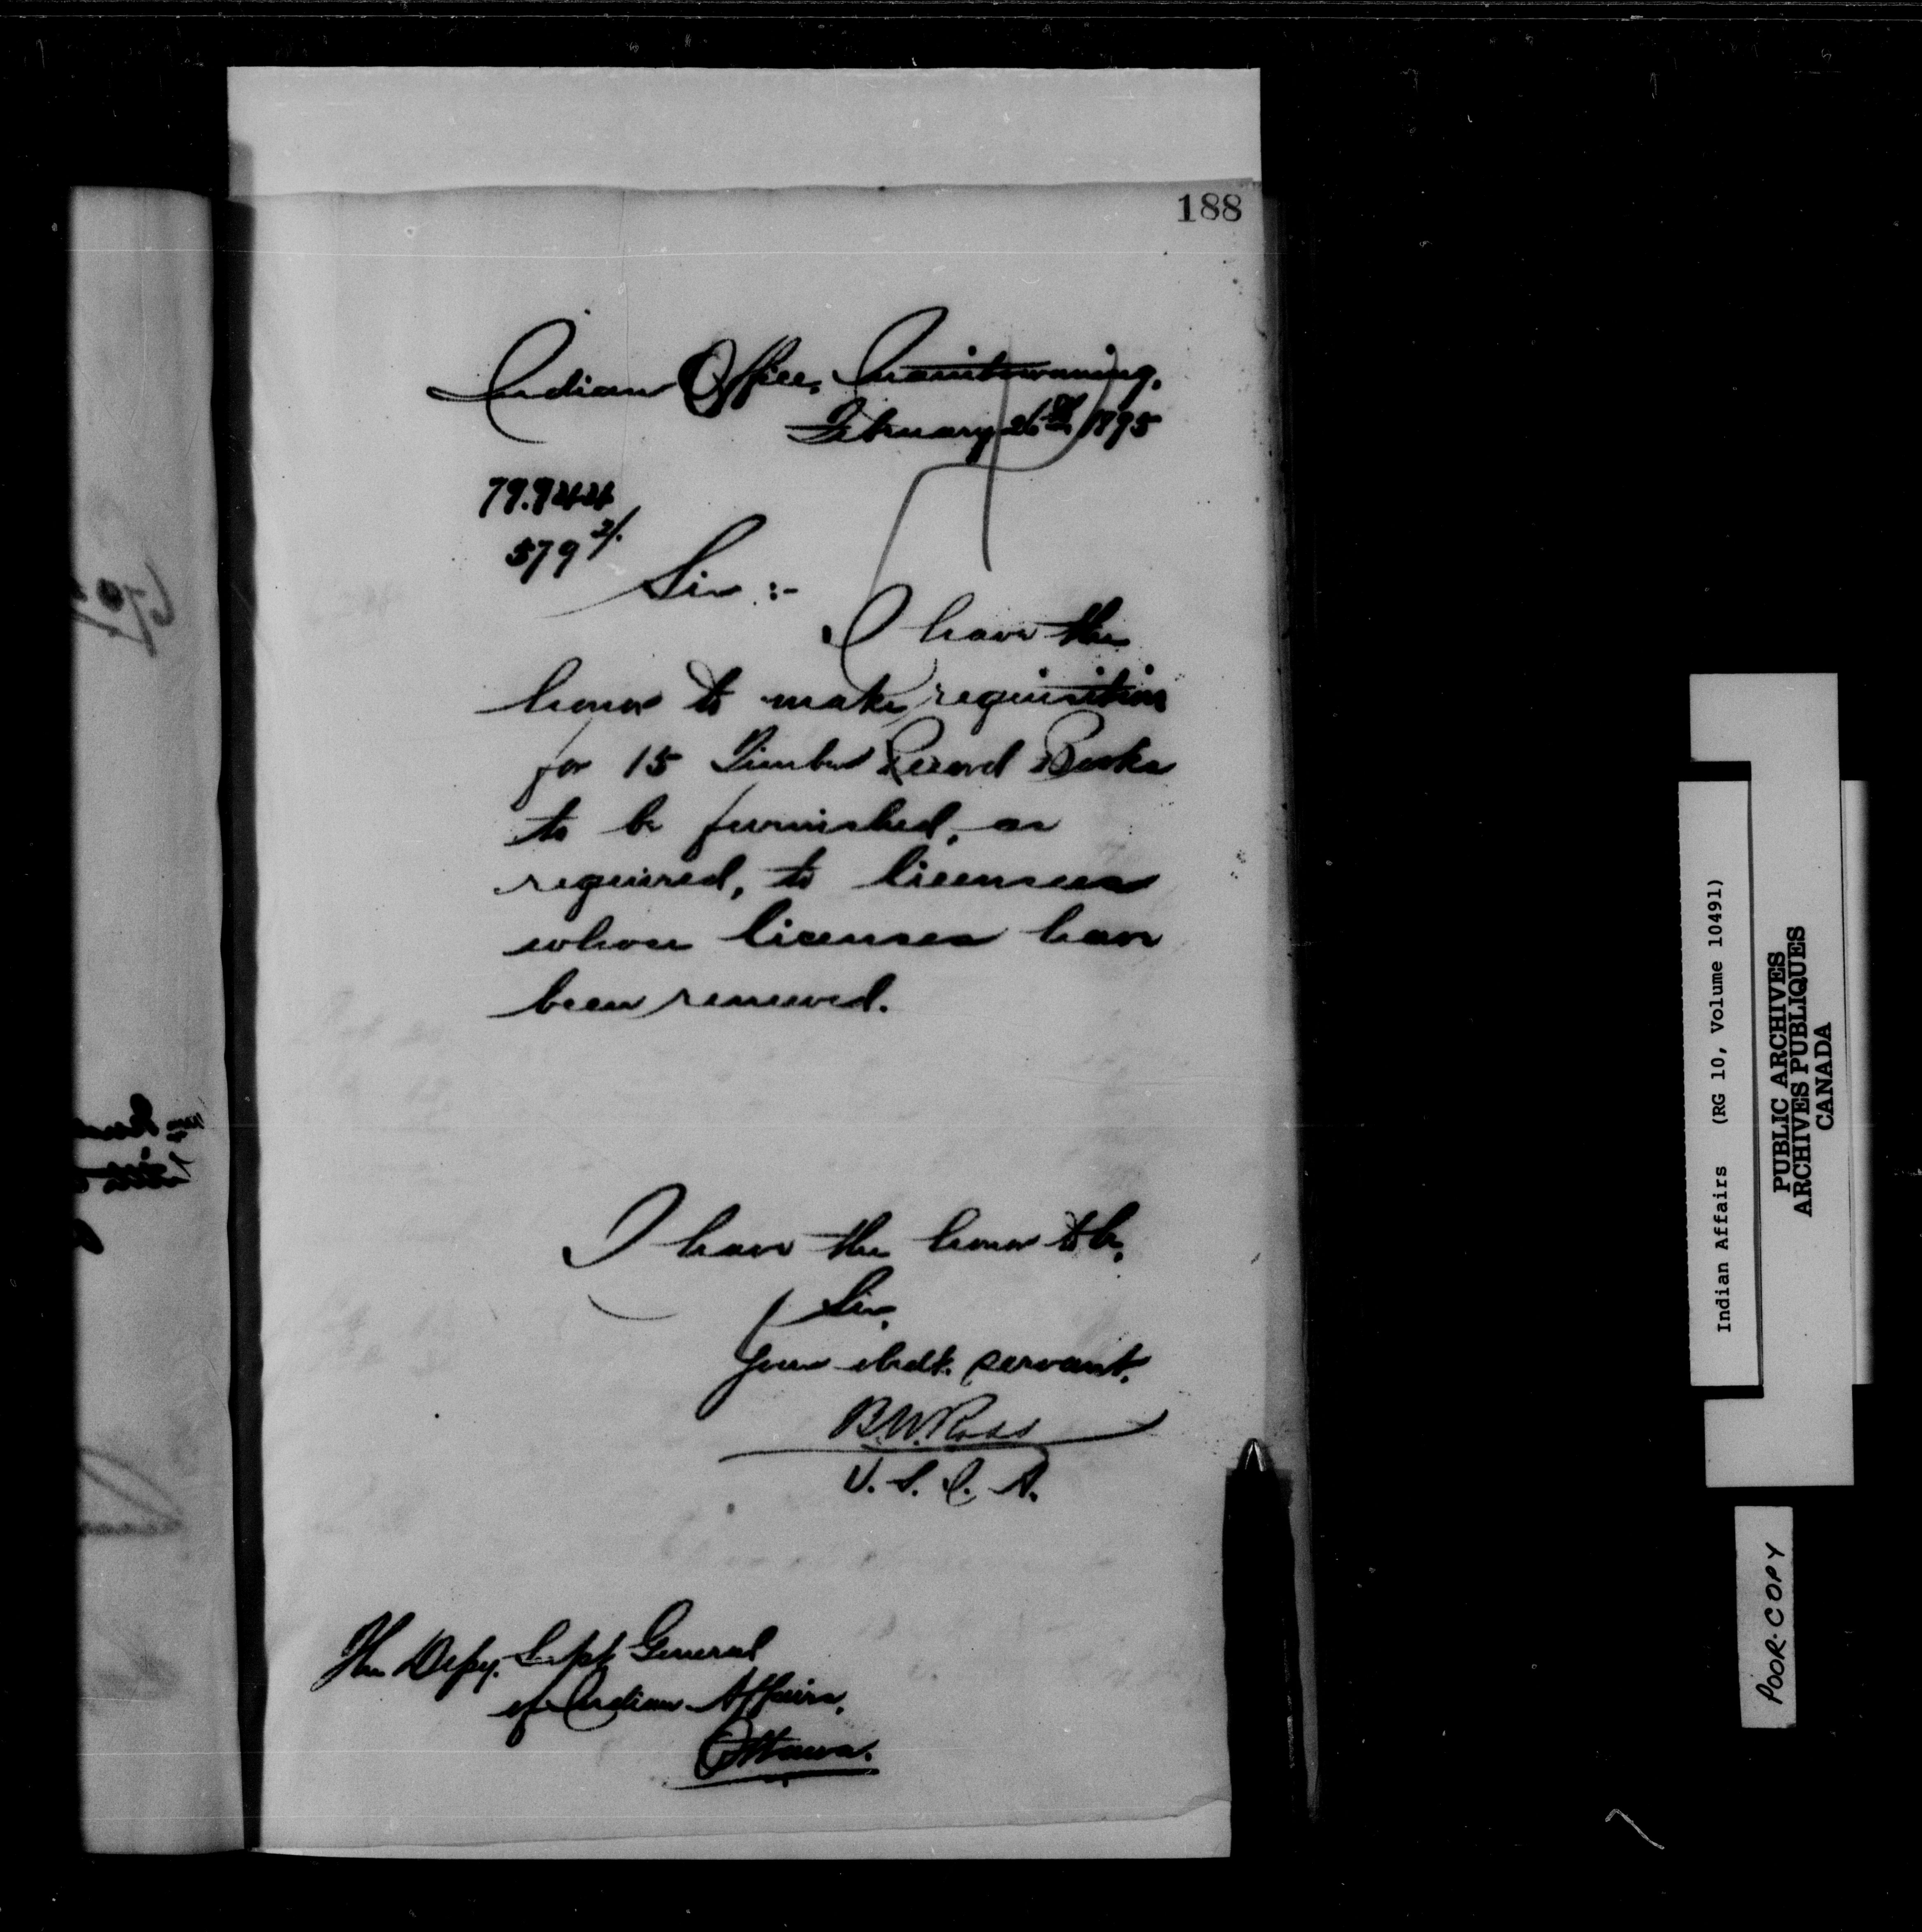 188
Indian Office, Manitowaning,
February 26th 1895
79.944
579 2/.
Sir :-
I have the
honor to make requisition
for 15 Timber Record Books
to be furnished, as
required, to licensees
whose licenses have
been renewed.
I have the honor to be,
Sir,
Your obedt. servant.
B.W. Ross
V. S. I. A.
The Depy. Supt General
of Indian Affairs,
Ottawa.
Indian Affairs (RG 10, Volume 10491)
PUBLIC ARCHIVES
ARCHIVES PUBLIQUES
CANADA
POOR-COPY